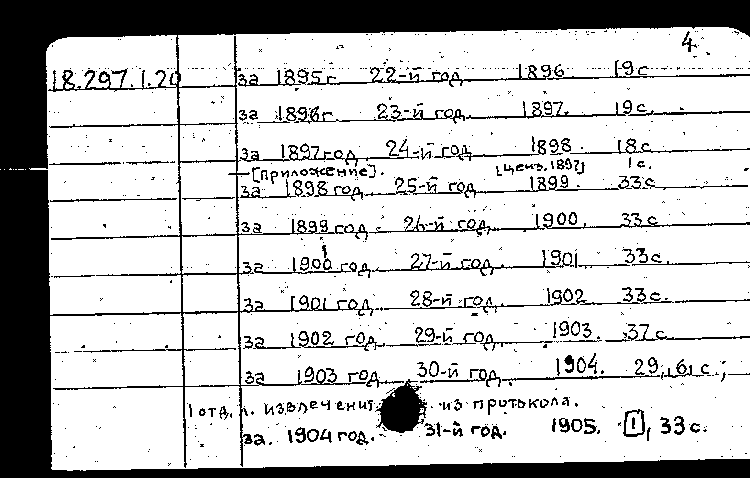 4
18.297.1.20 за 1895г 22-й год 1896 19с
за 1896г 23-й год. 1897. 19с.
за 1897год 24-й год 1898 18с
—[приложение]. [Ценз. 1897] 1с.
за 1898 год 25-й год 1899. 33с
за 1899 год. 26-й год. 1900. 33с
за 1900 год. 27-й год. 1901 33с.
за 1901 год. 28-й год. 1902 33с.
за 1902 год. 29-й год. 1903. 37с
за 1903 год 30-й год. 1904. 29, 6, с.;
1 отд. л. извлечения из протокола.
за. 1904 год. 31-й год. 1905. [1], 33с.